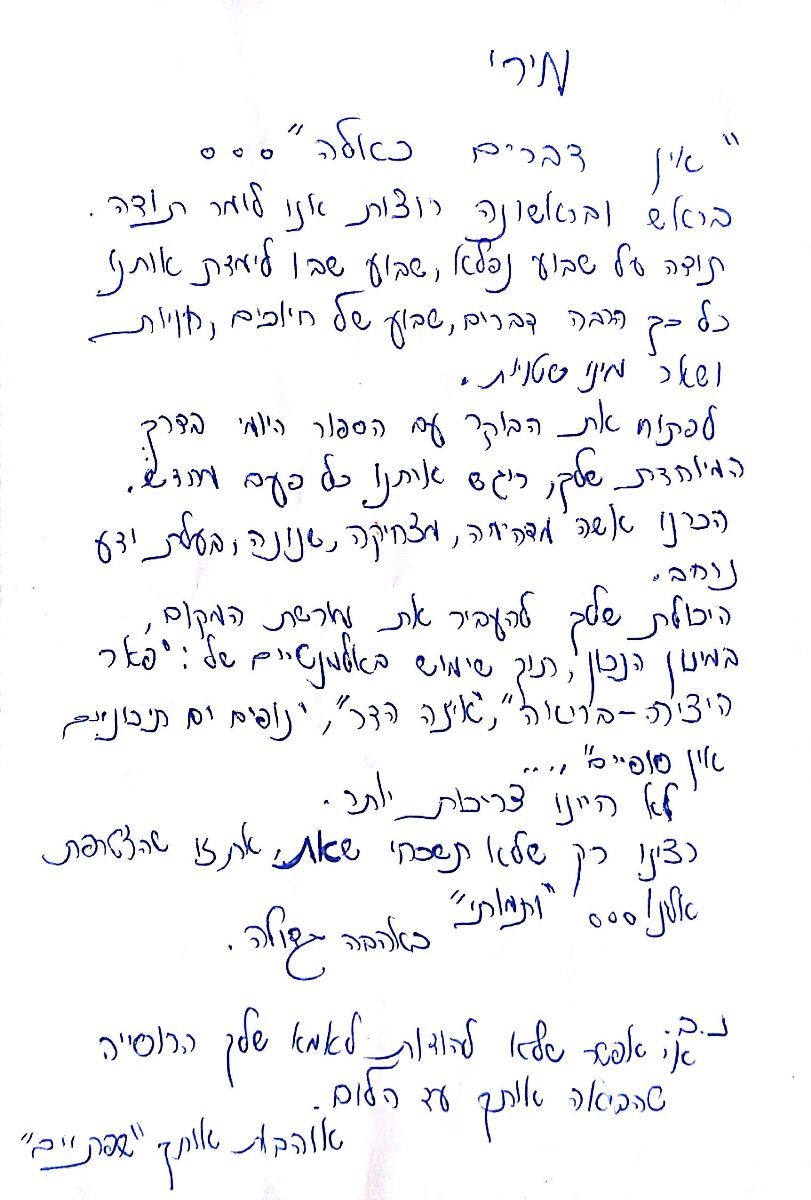 מירי
"אין דברים כאלה"...
בראש ובראשונה רוצות אנו לומר תודה.
תודה על שבוע נפלא, שבוע שבו לימדת אותנו
כל כך הרבה דברים, שבוע של חיוכים, חוויות
ושאר מיני שטויות.
לפתוח את הבוקר עם הספור היומי בדרך
המיוחדת שלך, ריגש אותנו כל פעם מחדש.
הכרנו אשה מדהימה, מצחיקה, שנונה, בעלת ידע
נרחב.
היכולת שלך להעביר את מורשת המקום,
במינון הנכון, תוך שימוש באלמנטיים של: "פאר
היצירה-בריאה", "אינה הדר", "נופים ים תיכוניים
אין סופיים"....
לא היינו צריכות יותר.
רצינו רק שלא תשכחי שאת, את זו שהצטרפת
אלינו... "ותמותי"
באהבה גדולה.
נ.ב.
אי אפשר שלא להודות לאמא שלך הרוסייה
שהביאה אותך עד הלום.
אוהבות אותך "שפתיים"